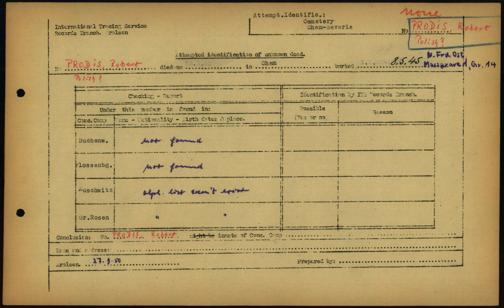 none
Attempt.Identific.:
International Tracing Service
Cemetery
PRODIS, Robert
Records Branch Arolsen
Cham-Bavaria
No.
Attempted identification of unknown dead.
N.Fr.
No PRODIS, Robert died on in Cham buried 8.5.45.
Massgrave 1, Gr. 14
Checking - Report
Identification by ITS Records Branch.
Under this number is found in:
Possible
Conc.Camp
Name - Nationality - Birth date & place.
(Yes or no)
Reason
Buchenw.
not found
Flossenbg.
not found
Auschwitz
alph. list doesn't exist
Gr.Rosen
" "
Conclusion: No. PRODIS, Robert inmate of Conc. Camp
Name and address:
Arolsen, 27.9.50
Prepared by: